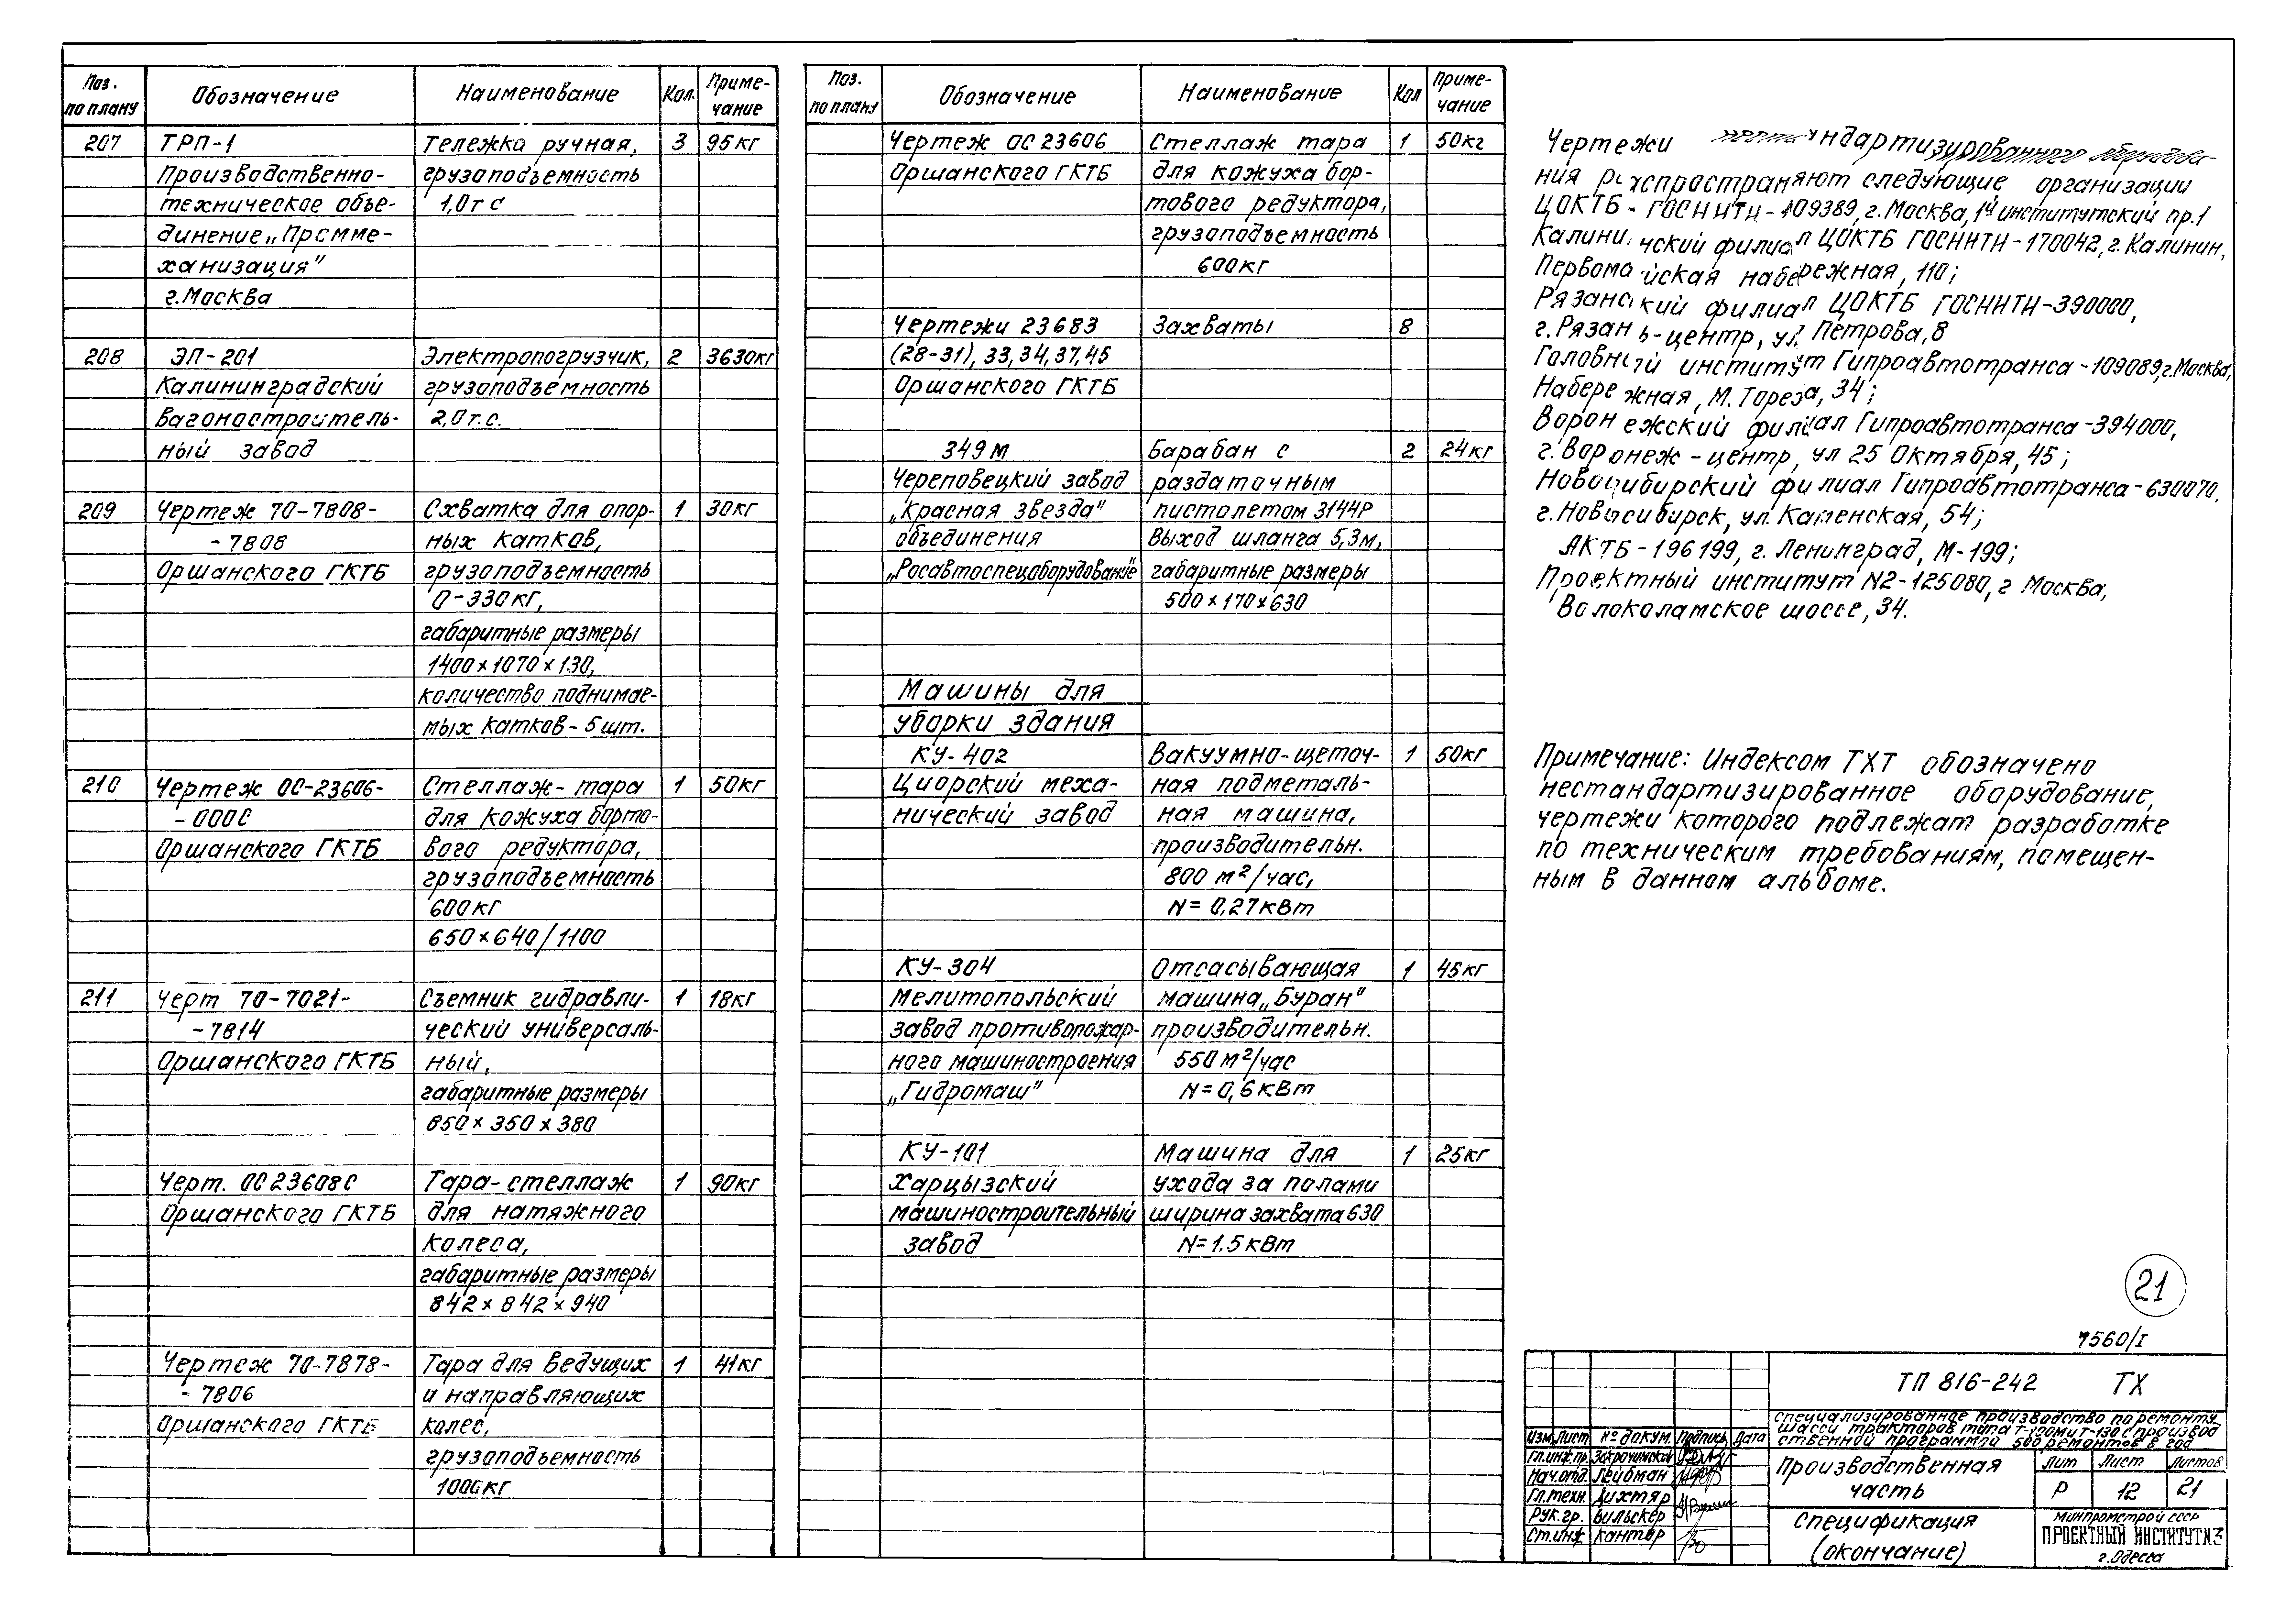 Поз. по плану | Обозначение | Наименование | Кол. | Приме-чание
207 | ТРП-1 | Тележка ручная, | 3 | 95кг
Производственно- | грузоподъемность
техническое объе- | 1,0тс
динение „Промме-
ханизация"
г.Москва
208 | ЭП-201 | Электропогрузчик, | 2 | 3630кг
Калининградский | грузоподъемность
вагоностроитель- | 2,0т.с.
ный завод
209 | Чертеж 70-7808- | Схватка для опор- | 1 | 30кг
-7808 | ных катков,
Оршанского ГКТБ | грузоподъемность
0-330кг,
габаритные размеры
1400×1070×130,
количество поднимае-
мых катков-5шт.
210 | Чертеж ОС-23606- | Стеллаж-тара | 1 | 50кг
-000С | для кожуха борто-
Оршанского ГКТБ | вого редуктора,
грузоподъемность
600кг
650×640/1100
211 | Черт 70-7021- | Съемник гидравли- | 1 | 18кг
-7814 | ческий универсаль-
Оршанского ГКТБ | ный,
габаритные размеры
850×350×380
Черт. ОС23608С | Тара-стеллаж | 1 | 90кг
Оршанского ГКТБ | для натяжного
колеса,
габаритные размеры
842×842×940
Чертеж 70-7878- | Тара для ведущих | 1 | 41кг
-7806 | и направляющих
Оршанского ГКТБ | колес,
грузоподъемность
1000кг
Поз. по плану | Обозначение | Наименование | Кол | Приме-чание
Чертеж ОС23606 | Стеллаж тара | 1 | 50кг
Оршанского ГКТБ | для кожуха бор-
тового редуктора,
грузоподъемность
600кг
Чертежи 23683 | Захваты | 8
(28-31), 33,34,37,45
Оршанского ГКТБ
349М | Барабан с | 2 | 24кг
Череповецкий завод | раздаточным
„Красная звезда" | пистолетом 3144Р
объединения | Выход шланга 5,3м,
„Росавтоспецоборудование" | габаритные размеры
500×170×630
Машины для
уборки здания
КУ-402 | Вакуумно-щеточ- | 1 | 50кг
Циорский меха- | ная подметаль-
нический завод | ная машина,
производительн.
800 м²/час,
N= 0,27кВт
КУ-304 | Отсасывающая | 1 | 45кг
Мелитопольский | машина„Буран"
завод противопожар- | производительн.
ного машиностроения | 550м²/час
„Гидромаш" | N=0,6кВт
КУ-101 | Машина для | 1 | 25кг
Харцызский | ухода за полами
машиностроительный | ширина захвата 630
завод | N=1.5кВт
Чертежи нестандартизированного оборудова-
ния распространяют следующие организации
ЦОКТБ-ГОСНИТИ-109389, г.Москва, 1й институтский пр.1
Калининский филиал ЦОКТБ ГОСНИТИ-170042, г.Калинин,
Первомайская набережная, 110;
Рязанский филиал ЦОКТБ ГОСНИТИ-390000,
г.Рязань-центр, ул. Петрова,8
Головной институт Гипроавтотранса-109089,г.Москва,
Набережная, М.Тореза, 34;
Воронежский филиал Гипроавтотранса-394000,
г.Воронеж-центр, ул 25 Октября, 45;
Новосибирский филиал Гипроавтотранса-630070,
г.Новосибирск, ул. Каменская, 54;
АКТБ-196199, г. Ленинград, М-199;
Проектный институт N2-125080, г Москва,
Волоколамское шоссе, 34.
Примечание: Индексом ТХТ обозначено
нестандартизированное оборудование,
чертежи которого подлежат разработке
по техническим требованиям, помещен-
ным в данном альбоме.
21
7560/I
ТП 816-242 ТХ
Специализированное производство по ремонту
шасси тракторов типа Т-100М и Т-130 с производ
ственной программой 500 ремонтов в год
Изм. Лист № докум. Подпись Дата
Гл.инж.пр. Закрочимский
Нач.отд. Лейбман
Гл.техн. Дихтяр
Рук.гр. Вильскер
Ст.инж Кантор
Производственная
часть
Лит Лист Листов
Р 12 21
Спецификация
(окончание)
Минпромстрой СССР
ПРОЕКТНЫЙ ИНСТИТУТ №3
г.Одесса